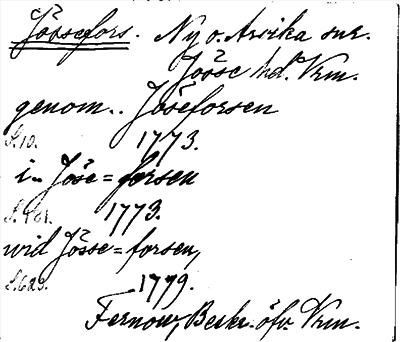 Jössefors. Ny o. Arvika snr.
Jösse hd. Vrm.
genom.. Jöseforsen
S.10. 1773.
i.. Jöse=forsen
S.481. 1773.
wid Jösse=forsen,
S.629. 1779.
Fernow, Beskr. öfv. Vrm.